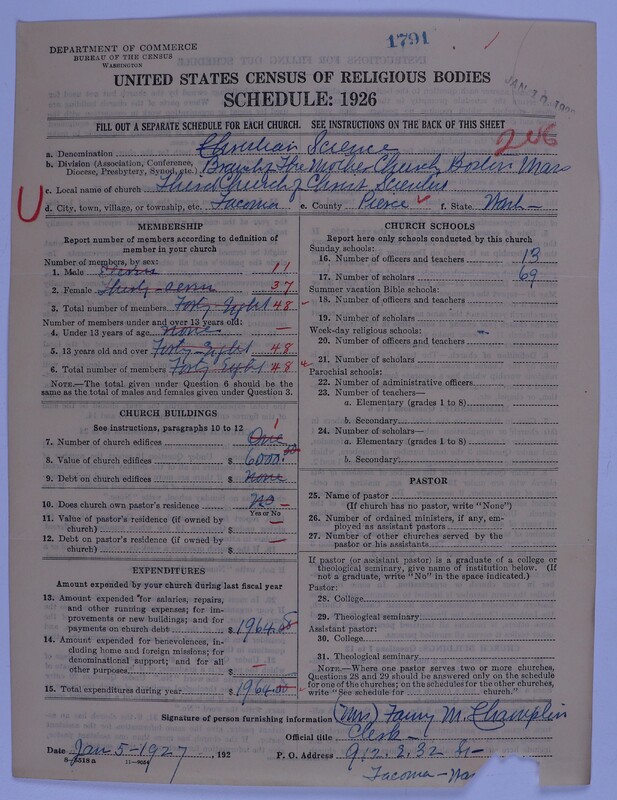 1791
DEPARTMENT OF COMMERCE
BUREAU OF THE CENSUS
WASHINGTON
UNITED STATES CENSUS OF RELIGIOUS BODIES
SCHEDULE: 1926
FILL OUT A SEPARATE SCHEDULE FOR EACH CHURCH. SEE INSTRUCTIONS ON THE BACK OF THIS SHEET
206
a. Denomination Christian Science
b. Division (Association, Conference, Diocese, Presbytery, Synod, etc.) Branch of The Mother Church Boston Mass
c. Local name of church Third Church of Christ Scientist
U
d. City, town, village, or township, etc. Tacoma e. County Pierce f. State Wash-
MEMBERSHIP
Report number of members according to definition of member in your church
Number of members, by sex:
1. Male Eleven 11
2. Female Thirty-seven 37
3. Total number of members Forty Eight 48
Number of members under and over 13 years old:
4. Under 13 years of age None —
5. 13 years old and over Forty-Eight 48
6. Total number of members Forty Eight 48
NOTE.—The total given under Question 6 should be the same as the total of males and females given under Question 3.
CHURCH BUILDINGS
See instructions, paragraphs 10 to 12
7. Number of church edifices One 1
8. Value of church edifices $ 6000.00
9. Debt on church edifices $ None
10. Does church own pastor's residence No
Yes or No
11. Value of pastor's residence (if owned by church) $ —
12. Debt on pastor's residence (if owned by church) $ —
EXPENDITURES
Amount expended by your church during last fiscal year
13. Amount expended for salaries, repairs, and other running expenses; for improvements or new buildings; and for payments on church debt $ 1964.00
14. Amount expended for benevolences, including home and foreign missions; for denominational support; and for all other purposes $ —
15. Total expenditures during year $ 1964.00
CHURCH SCHOOLS
Report here only schools conducted by this church
Sunday schools:
16. Number of officers and teachers 13
17. Number of scholars 69
Summer vacation Bible schools:
18. Number of officers and teachers
19. Number of scholars
Week-day religious schools:
20. Number of officers and teachers
21. Number of scholars
Parochial schools:
22. Number of administrative officers
23. Number of teachers—
a. Elementary (grades 1 to 8)
b. Secondary
24. Number of scholars—
a. Elementary (grades 1 to 8)
b. Secondary
PASTOR
25. Name of pastor
(If church has no pastor, write "None")
26. Number of ordained ministers, if any, employed as assistant pastors
27. Number of other churches served by the pastor or his assistants
If pastor (or assistant pastor) is a graduate of a college or theological seminary, give name of institution below. (If not a graduate, write "No" in the space indicated.)
Pastor:
28. College
29. Theological seminary
Assistant pastor:
30. College
31. Theological seminary
NOTE.—Where one pastor serves two or more churches, Questions 28 and 29 should be answered only on the schedule for one of the churches; on the schedules for the other churches, write "See schedule for church."
Signature of person furnishing information (Mrs) Fanny M. Champlin
Official title Clerk-
Date Jan 5-1927, 192 P. O. Address 912. E. 32 St-
8-5518 a
Tacoma-Was